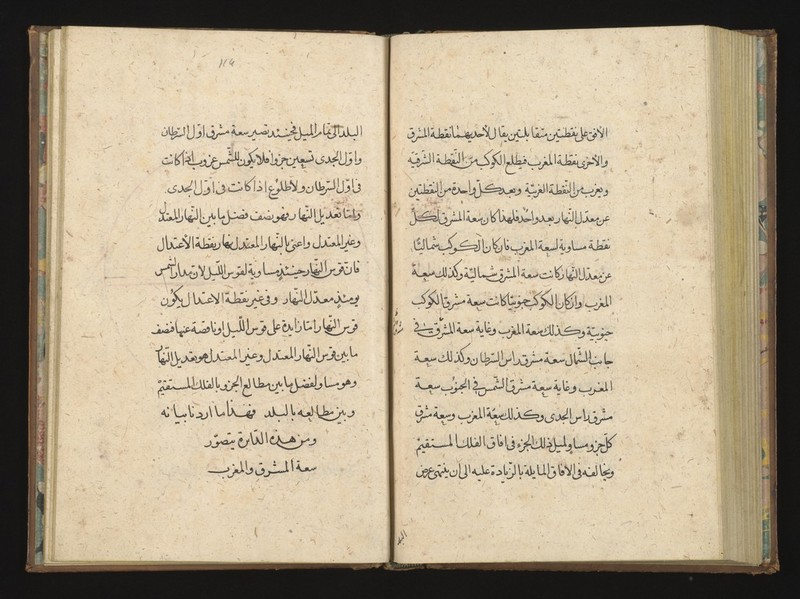 الافق على نقطتين متقابلتين يقال لاحديهما نقطة المشرق
والاخرى نقطة المغرب فيطلع الكوكب من النقطة الشرقية
ويغرب من النقطة الغربية وبعد كل واحدة من النقطتين
عن معدل النهار بعد واحد فلهذا كان سعة المشرق لكل
نقطة مساوية لسعة المغرب فان كان الكوكب شماليا
عن معدل النهار كانت سعة المشرق شمالية وكذلك سعة
المغرب وان كان الكوكب جنوبيا كانت سعة مشرق الكوكب
جنوبية وكذلك سعة المغرب وغاية سعة المشرق في
جانب الشمال سعة مشرق راس السرطان وكذلك سعة
المغرب وغاية سعة مشرق الشمس في الجنوب سعة
مشرق راس الجدى وكذلك سعة المغرب وسعة مشرق
كل جزو مساو لميل ذلك الجزء في افاق الفلك المستقيم
ويخالفه في الافاق المايلة بالزيادة عليه الى ان ينتهى عرض
البلد
البلد الى تمام الميل فحينئذ تصير سعة مشرق اول السرطان
واول الجدى تسعين جزوا فلا يكون للشمس غروب اذا كانت
في اول السرطان ولا طلوع اذا كانت في اول الجدى
واما تعديل النهار فهو نصف فضل ما بين النهار المعتدل
وغير المعتدل واعنى بالنهار المعتدل نهار نقطة الاعتدال
فان قوس النهار حينئذ مساوية لقوس الليل لان مدار الشمس
يومئذ معدل النهار وفي غير نقطة الاعتدال يكون
قوس النهار اما زايدة على قوس الليل او ناقصة عنها فنصف
ما بين قوس النهار المعتدل وغير المعتدل هو تعديل النهار
وهو مساو لفضل ما بين مطالع الجزو بالفلك المستقيم
وبين مطالعه بالبلد فهذا ما اردنا بيانه
ومن هذه الدايرة يتصور
سعة المشرق والمغرب